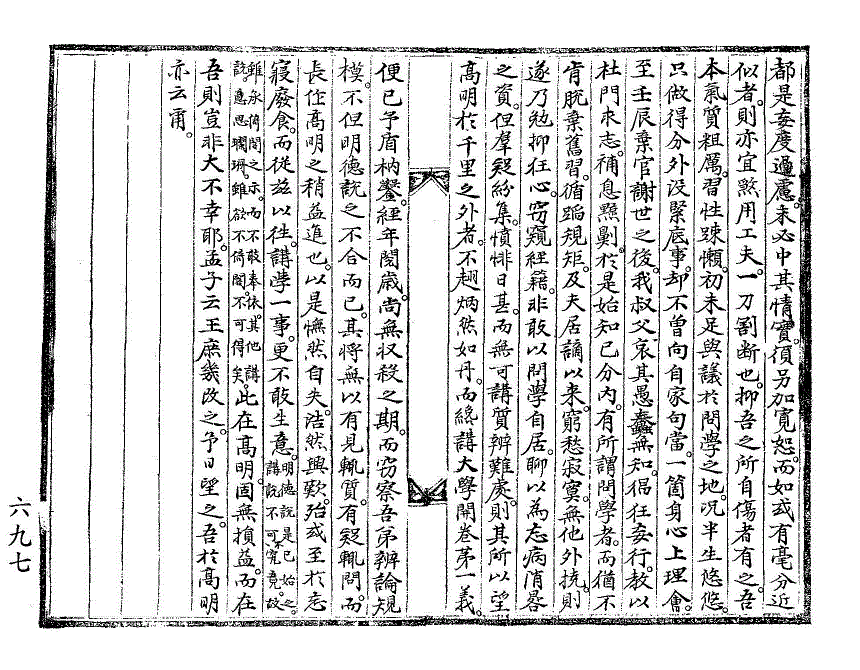 都是妄度過慮。未必中其情實。償另加寬恕。而如或有毫分近
似者。則亦宜煞用工夫。一刀割斷也。抑吾之所自傷者有之。吾
本氣質粗厲。習性踈懶。初未足與議於問學之地。况半生悠悠。
只做得分外没緊底事。却不曾向自家句當。一箇身心上理會。
至壬辰棄官謝世之後。我叔父哀其愚蠢無知。猖狂妄行。敎以
杜門求志。補息黥劓。於是始知已分內。有所謂問學者。而猶不
肯脫棄舊習。循蹈規矩。及夫居謫以來。窮愁寂寞。無他外撓。則
遂乃勉抑狂心。窃窺經籍。非敢以問學自居。聊以為忘病消晷
之資。但羣疑紛集。憤悱日甚。而無可講質辨難處。則其所以望
高明於千里之外者。不翅炳然如丹。而纔講大學開卷第一義。
便已矛盾枘鑿。經年閱歲。尚無収殺之期。而窃察吾弟辨論規
模。不但明德說之不合而已。其將無以有見輒質。有疑輒問。而
長仼高明之稍益進也。以是憮然自失。浩然興歎。殆或至於忘
寢廢食。而從玆以往。講學一事。更不敢生意。明德說是已始之。講說不可究竟。故
雖承俯問之示。而不敢奉依。其他講說。意思闌珊。雖欲不倚閣。不可得矣。此在高明固無損益。而在
吾則豈非大不幸耶。孟子云王庶幾改之。予日望之。吾於高明
亦云甭。
六九七